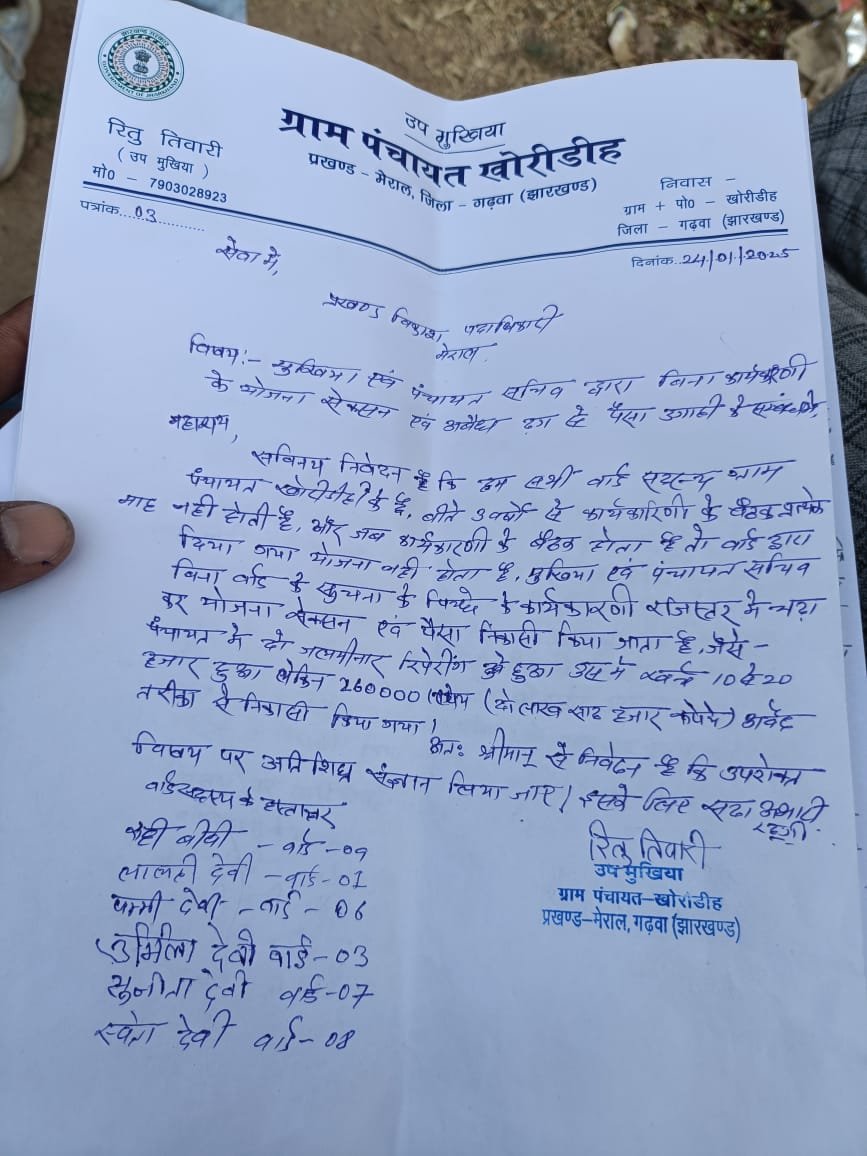 झारखण्ड सरकार
GOVERNMENT OF JHARKHAND
उप मुखिया
ग्राम पंचायत खोरीडीह
प्रखण्ड - मेराल, जिला - गढ़वा (झारखण्ड)
रितु तिवारी
( उप मुखिया )
मो० - 7903028923
निवास -
ग्राम + पो० - खोरीडीह
जिला - गढ़वा (झारखण्ड)
पत्रांक...03...........
दिनांक..24/01/2025
सेवा में,
प्रखण्ड विकाश पदाधिकारी
मेराल
विषय:- मुखिया एवं पंचायत सचिव द्वारा बिना कार्यकारणी
के योजना सेक्सन एवं अवैध ढंग से पैसा उगाही के सम्बंध में,
महाशय,
सविनय निवेदन है कि हम सभी वार्ड सदस्य ग्राम
पंचायत खोरीडीह के है, बीते 3 वर्षो से कार्यकारिणी के बैठक प्रत्येक
माह नही होती है, और जब कार्यकारणी के बैठक होता है तो वार्ड द्वारा
दिया गया योजना नही होता है, मुखिया एवं पंचायत सचिव
बिना वार्ड के सुचना के के कार्यकारणी रजिस्टर मे चढ़ा
कर योजना सेक्सन एवं पैसा निकासी किया जाता है, जैसे -
पंचायत मे दो जलमीनार रिपेरींग हुआ उस मे खर्च 10 से 20
हजार हुआ लेकिन 260000 (दो लाख साठ हजार रूपये) अवैद
तरीका से निकासी किया गया।
अतः श्रीमान् से निवेदन है कि उपरोक्त
विषय पर अति शिघ्र संज्ञान लिया जाए। इसके लिए सदा अभारी
रहूंगी.
वार्ड सदस्य के हस्ताक्षर
रितु तिवारी
उप मुखिया
ग्राम पंचायत-खोरीडीह
प्रखण्ड-मेराल, गढ़वा (झारखण्ड)
बीवी - वार्ड - 09
लालती देवी - वार्ड - 01
पम्मी देवी - वार्ड - 06
उर्मिला देवी वार्ड - 03
सुनीता देवी वार्ड - 07
स्वेता देवी वार्ड - 08